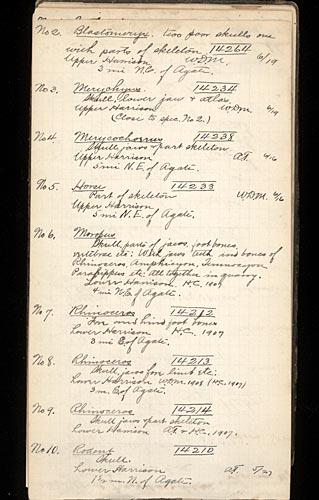 No 2. Blastomeryx. two poor skulls one
with parts of skeleton. 14264
Upper Harrison W.D.M. 6/19
3 mi N.E. of Agate.
No 3. Merychyus. 14234
Skull, lower jaw & atlas
Upper Harrison W.D.M. 6/19
(Close to spec. No 2.)
No 4. Merycochoerus 14238
Skull jaws & part skeleton
Upper Harrison A.T. 6/16
5 mi N.E. of Agate.
No 5. Horse 14233
Part of skeleton W.D.M. 6/16
Upper Harrison
5 mi N.E. of Agate.
No 6. Moropus
Skull, parts of jaws, foot bones,
vertebrae etc. With jaws teeth and bones of
Rhinoceros,
Parahippus etc. All together in quarry.
Lower Harrison. H.C. 1907
4 mi N.E. of Agate.
No 7. Rhinoceros 14212
Fore and hind foot bones
Lower Harrison H.C. 1907
3 mi. E of Agate.
No 8. Rhinoceros 14213
Skull, jaws fore limb etc.
Lower Harrison W.D.M. 1908 (H.C. 1907)
3 m. E of Agate.
No 9. Rhinoceros 14214
Skull jaws & part skeleton
Lower Harrison A.T. & H.C. 1907.
No 10. Rodent 14210
Skull.
Lower Harrison A.T.
1½ m. N. of Agate.